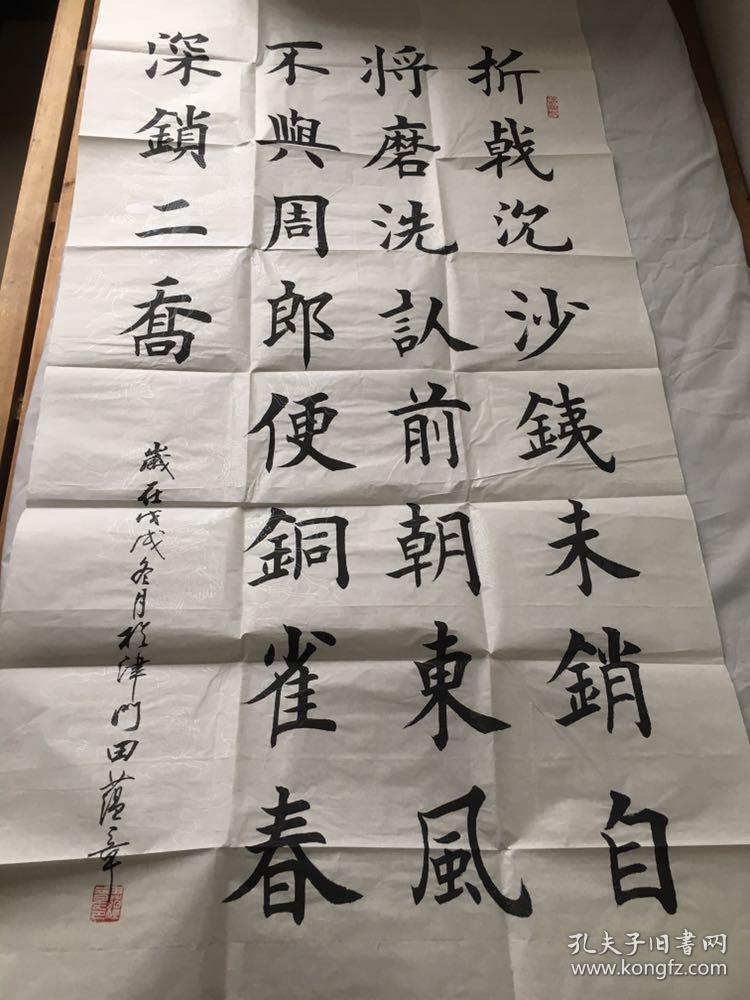 折戟沉沙銕未銷自
将磨洗認前朝東風
不與周郎便銅雀春
深鎖二喬
歲在戊戌冬月於津門田蕴章
孔夫子旧書网
www.kongfz.com